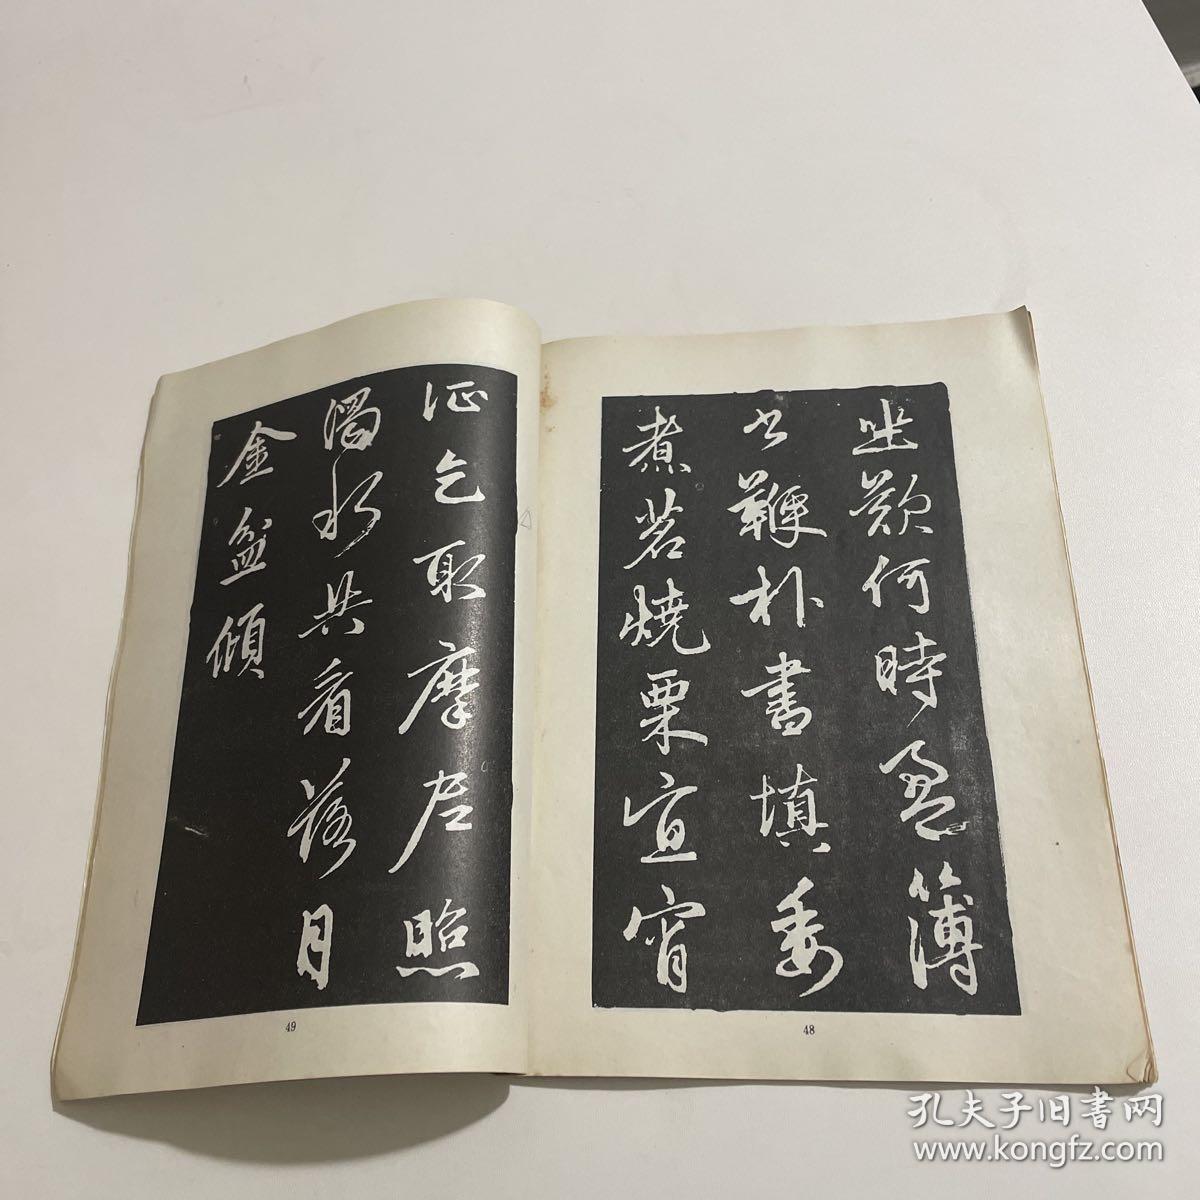 坐歎何時盈簿
書鞭朴晝填委
煮茗燒栗宜宵
48
征乞取摩尼照
濁水共看落月
金盆傾
49
孔夫子旧书网
www.kongfz.com